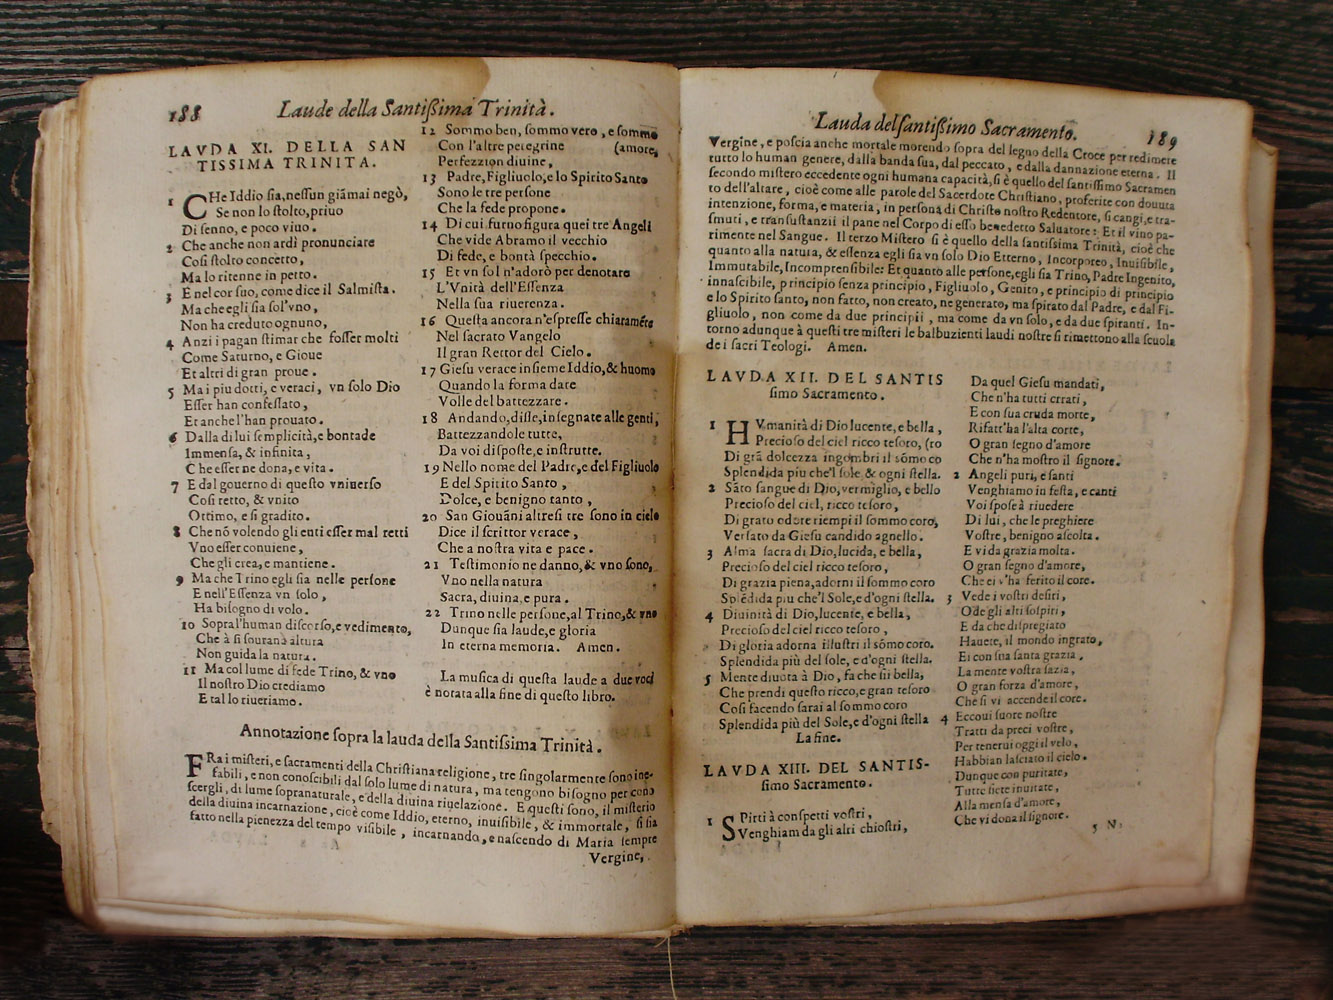 188
Laude della Santissima Trinità.
LAVDA XI. DELLA SAN
TISSIMA TRINITA.
1 CHe Iddio sia, nessun giãmai negò,
Se non lo stolto, priuo
Di senno, e poco viuo.
2 Che anche non ardì pronunciare
Così stolto concetto,
Ma lo ritenne in petto.
3 E nel cor suo, come dice il Salmista.
Ma che egli sia sol'vno,
Non ha creduto ognuno,
4 Anzi i pagan stimar che fosser molti
Come Saturno, e Gioue
Et altri di gran proue.
5 Ma i piu dotti, e veraci, vn solo Dio
Esser han confessato,
Et anche l'han prouato.
6 Dalla di lui semplicità, e bontade
Immensa, & infinita,
Che esser ne dona, e vita.
7 E dal gouerno di questo vniuerso
Così retto, & vnito
Ottimo, e sì gradito.
8 Che nõ volendo gli enti esser mal retti
Vno esser conuiene,
Che gli crea, e mantiene.
9 Ma che Trino egli sia nelle persone
E nell'Essenza vn solo,
Ha bisogno di volo.
10 Sopral'human discorso, e vedimento,
Che à sì sourana altura
Non guida la natura.
11 Ma col lume di fede Trino, & vno
Il nostro Dio crediamo
E tal lo riueriamo.
12 Sommo ben, sommo vero, e sommo
Con l'altre peregrine (amore,
Perfezzion diuine,
13 Padre, Figliuolo, e lo Spirito Santo
Sono le tre persone
Che la fede propone.
14 Di cui furno figura quei tre Angeli
Che vide Abramo il vecchio
Di fede, e bontà specchio.
15 Et vn sol n'adorò per denotare
L'Vnità dell'Essenza
Nella sua riuerenza.
16 Questa ancora n'espresse chiaramẽte
Nel sacrato Vangelo
Il gran Rettor del Cielo.
17 Giesu verace insieme Iddio, & huomo
Quando la forma dare
Volle del battezzare.
18 Andando, disse, insegnate alle genti,
Battezzandole tutte,
Da voi disposte, e instrutte.
19 Nello nome del Padre, e del Figliuolo
E del Spirito Santo,
Dolce, e benigno tanto,
20 San Giouãni altresi tre sono in cielo
Dice il scrittor verace,
Che a nostra vita e pace.
21 Testimonio ne danno, & vno sono,
Vno nella natura
Sacra, diuina, e pura.
22 Trino nelle persone, al Trino, & vno
Dunque sia laude, e gloria
In eterna memoria. Amen.
La musica di questa laude a due voci
è notata alla fine di questo libro.
Annotazione sopra la lauda della Santissima Trinità.
FRa i misteri, e sacramenti della Christiana religione, tre singolarmente sono ine-
fabili, e non conoscibili dal solo lume di natura, ma tengono bisogno per così
scergli, di lume sopranaturale, e della diuina riuelazione. E questi sono, il misterio
della diuina incarnazione, cioè come Iddio, eterno, inuisibile, & immortale, si sia
fatto nella pienezza del tempo visibile, incarnando, e nascendo di Maria sempre
Vergine,
Lauda del santissimo Sacramento.
189
Vergine, e poscia anche mortale morendo sopra del legno della Croce per redimere
tutto lo human genere, dalla banda sua, dal peccato, e dalla dannazione eterna. Il
secondo mistero eccedente ogni humana capacità, si è quello del santissimo Sacramen
to dell'altare, cioè come alle parole del Sacerdote Christiano, proferite con douuta
intenzione, forma, e materia, in persona di Christo nostro Redentore, si cangi, e tra-
smuti, e transustanzii il pane nel Corpo di esso benedetto Saluatore: Et il vino pa-
rimente nel Sangue. Il terzo Mistero si è quello della santissima Trinità, cioè che
quanto alla natura, & essenza egli sia vn solo Dio Etterno, Incorporeo, Inuisibile,
Immutabile, Incomprensibile: Et quanto alle persone, egli sia Trino, Padre Ingenito,
innascibile, principio senza principio, Figliuolo, Genito, e principio di principio
e lo Spirito santo, non fatto, non creato, ne generato, ma spirato dal Padre, e dal Fi-
gliuolo, non come da due principii, ma come da vn solo, e da due spiranti. In-
torno adunque à questi tre misteri le balbuzienti laudi nostre si rimettono alla scuola
de i sacri Teologi. Amen.
LAVDA XII. DEL SANTIS
simo Sacramento.
1 HVmanità di Dio lucente, e bella,
Precioso del ciel ricco tesoro, (ro
Di grã dolcezza ingombri il sõmo co
Splendida piu che'l sole & ogni stella.
2 Sãto sangue di Dio, vermiglio, e bello
Precioso del ciel, ricco tesoro,
Di grato odore riempi il sommo coro,
Versato da Giesu candido agnello.
3 Alma sacra di Dio, lucida, e bella,
Precioso del ciel ricco tesoro,
Di grazia piena, adorni il sommo coro
Splẽdida piu che'l Sole, e d'ogni stella.
4 Diuinità di Dio, lucente, e bella,
Precioso del ciel ricco tesoro,
Di gloria adorna illustri il sõmo coro.
Splendida più del sole, e d'ogni stella.
5 Mente diuota à Dio, fa che sii bella,
Che prendi questo ricco, e gran tesoro
Così facendo sarai al sommo coro
Splendida più del Sole, e d'ogni stella
La fine.
LAVDA XIII. DEL SANTIS-
simo Sacramento.
1 SPirti à conspetti vostri,
Venghiam da gli altri chiostri,
Da quel Giesu mandati,
Che n'ha tutti errati,
E con sua cruda morte,
Rifatt'ha l'alta corte,
O gran segno d'amore
Che n'ha mostro il signore.
2 Angeli puri, e santi
Venghiamo in festa, e canti
Voi spose à riuedere
Di lui, che le preghiere
Vostre, benigno ascolta.
E vi da grazia molta.
O gran segno d'amore,
Che ei v'ha ferito il core.
3 Vede i vostri desiri,
Ode gli alti sospiri,
E da che dispregiato
Hauete, il mondo ingrato,
Ei con sua santa grazia,
La mente vostra sazia,
O gran forza d'amore,
Che si vi accende il core.
4 Eccoui suore nostre
Tratti da preci vostre,
Per tenerui oggi il velo,
Habbian lasciato il cielo.
Dunque con puritate,
Tutte siete inuitate,
Alla mensa d'amore,
Che vi dona il signore.